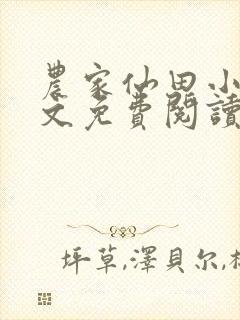 農家仙田小
文免費閱讀
坪草,澤貝尔,林